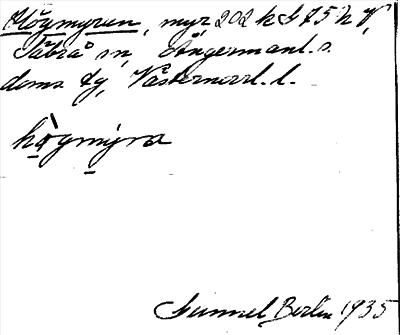 Högmyren, myr, 202 k I 75 h V,
Säbrå sn, Ångermanl. s.
doms. tg, Västernorrl. l.
högmyra
Gunnel Berlin 1935